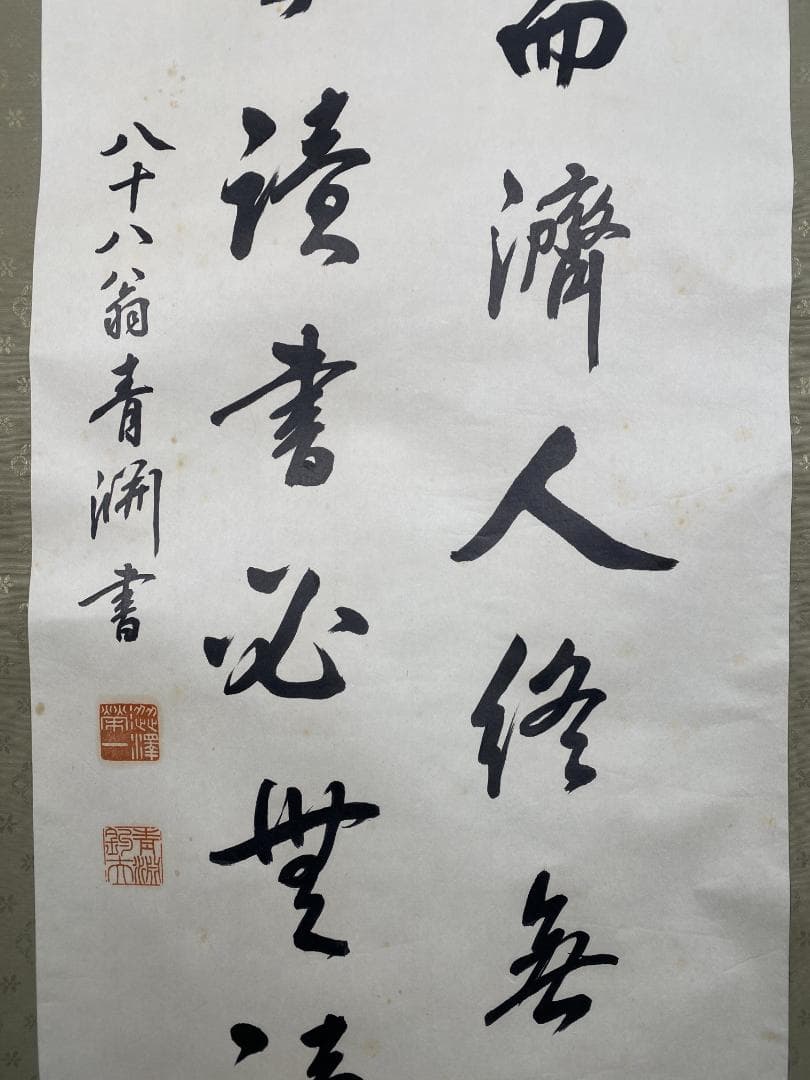 而濟人終無
讀書必無
八十八翁青淵書
澁澤榮一
青淵